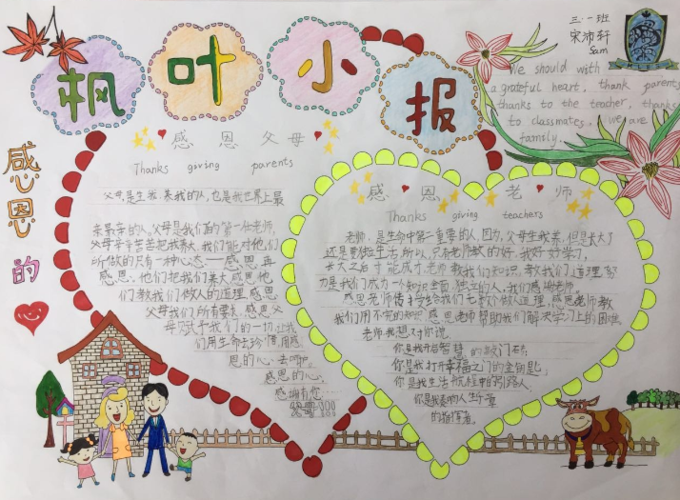 枫叶小报
三.一班
宋沛轩
Sam
We should with
a grateful heart, thank parents
thanks to the teacher, thanks
to classmates, we are
family.
感恩的
感恩父母
Thanks giving parents
父母,是生我、养我的人,也是我世界上最
亲最亲的人。父母是我们的第一位老师,
父母辛辛苦苦把我养大,我们能对他们
所做的只有一种心态——感恩。再
感恩,他们把我们养大,感恩他
们教我们做人的道理,感恩
父母我们所有事,感恩父
母赋予我们的一切,让我
们用生命去珍惜,用感
恩的心去呵护。
感恩的心,
感谢有您。
感恩老师
Thanks giving teachers
老师,是生命中第二重要的人,因为,父母生我养,但是长大了
还是要做生,所以,只有老师教的好,我好好学习,
长大之后才能成才。老师教我们知识,教我们道理,努
力是我们成为一个知识全面,独立的人,我们感谢老师。
感恩老师传授给我们无数个做人道理,感恩老师教
我们用不完的知识,感恩老师帮助我们解决学习上的困难。
老师我想对你说
你是我开启智慧的敲门砖,
你是我打开幸福之门的金钥匙,
你是我生活航程中的引路人,
你是我奏响人生乐章